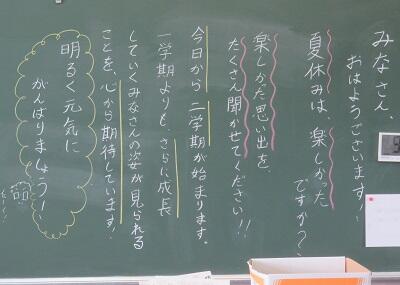 みなさん、
おはようございます!
夏休みは、楽しかった
ですか?
楽しかた思い出を、
たくさん聞かせてください!!
今日から二学期が始まります。
一学期よりも、さらに成長
していくみなさんの姿が見られる
ことを、心から期待しています!
明るく元気に
がんばりましょう!